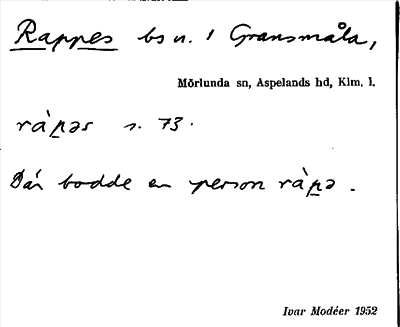 Rappes bs n. i Gransmåla,
Mörlunda sn, Aspelands hd, Klm. l.
ràp̲əs s. 73.
Där bodde en person ràp̲ə.
Ivar Modéer 1952